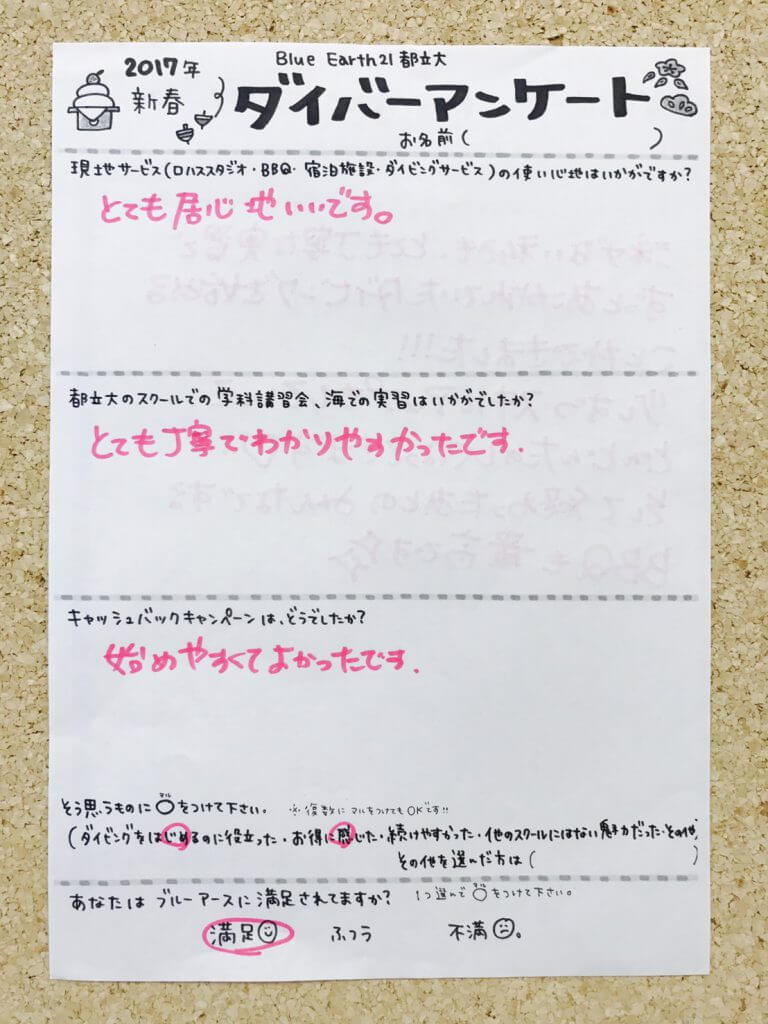 Blue Earth21 都立大
2017年
新春
ダイバーアンケート
お名前( )
現地サービス(ロハススタジオ・BBQ・宿泊施設・ダイビングサービス)の使い心地はいかがですか?
とても居心地いいです。
都立大のスクールでの学科講習会、海での実習はいかがでしたか?
とても丁寧でわかりやすかったです.
キャッシュバックキャンペーンは、どうでしたか?
始めやすくてよかったです.
そう思うものに○をつけて下さい。 ※複数にマルをつけてもOKです!!
マル
(ダイビングをはじめるのに役立った・お得に感じた・続けやすかった・他のスクールにはない魅力だった・その他)
その他を選んだ方は( )
あなたは ブルーアースに満足されてますか? 1つ選んで○をつけて下さい。
マル
満足 ふつう 不満 。